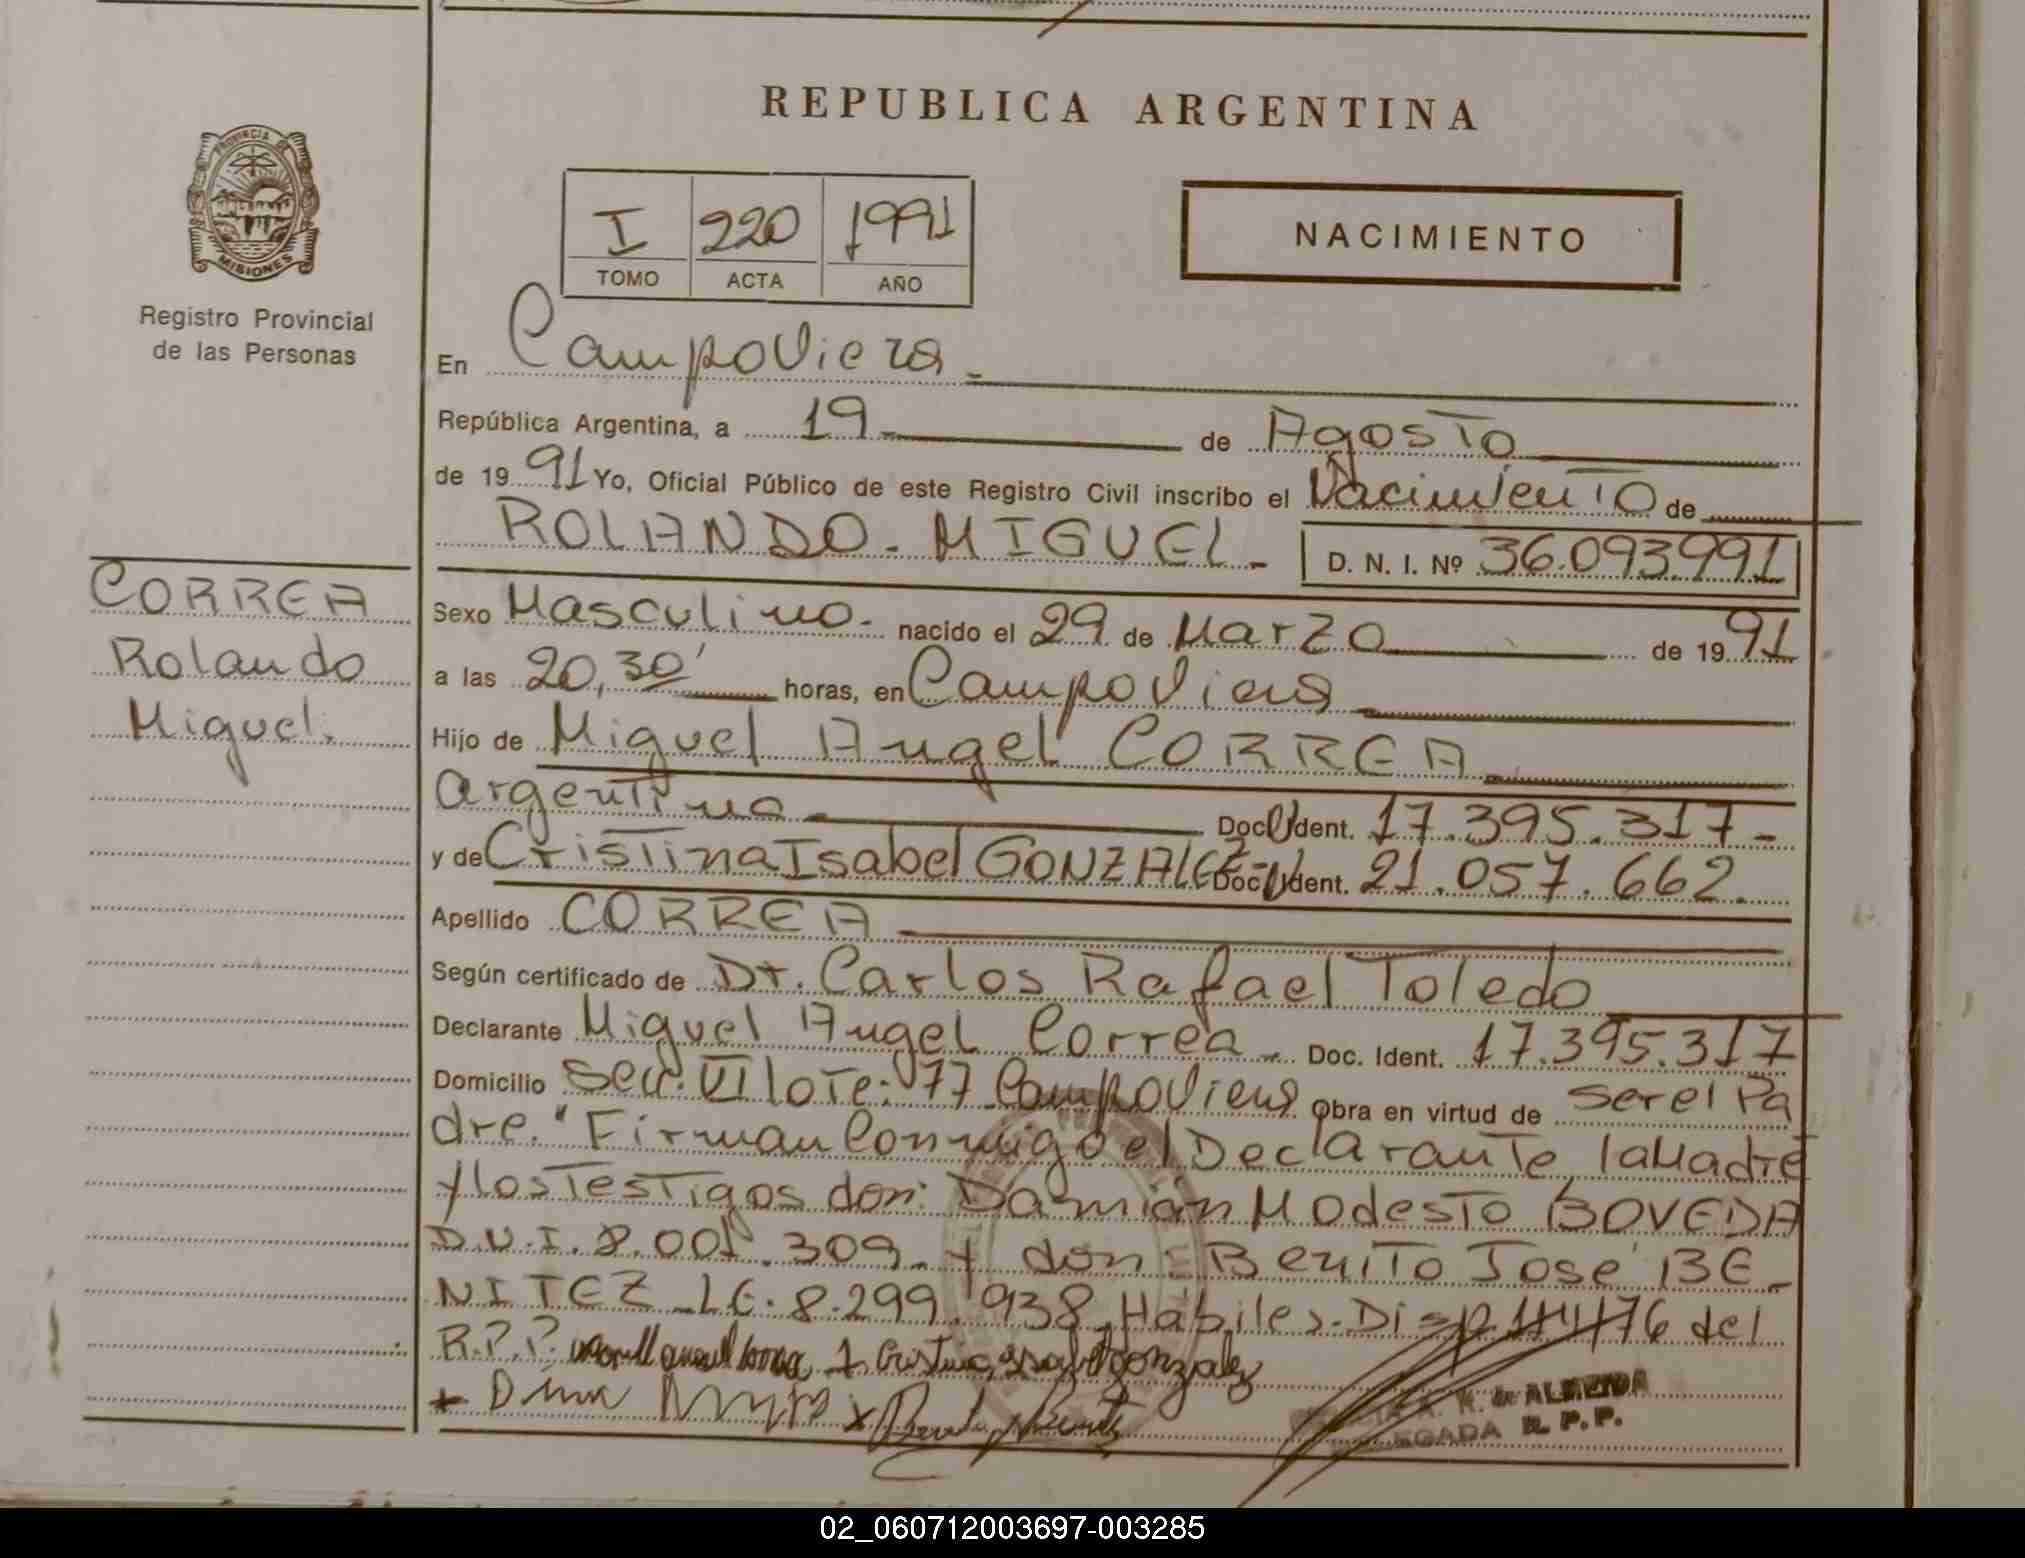 REPUBLICA ARGENTINA
PROVINCIA DE
MISIONES
Registro Provincial
de las Personas
I 220 1991
TOMO ACTA AÑO
NACIMIENTO
En CampoViera
República Argentina, a 19 de Agosto
de 19 91 Yo, Oficial Público de este Registro Civil inscribo el Nacimiento de
ROLANDO - MIGUEL - D. N. I. Nº 36.093.991
CORREA
Rolando
Miguel.
Sexo Masculino. nacido el 29 de Marzo de 19 91
a las 20,30' horas, en CampoViera
Hijo de Miguel Angel CORREA
argentino Doc. Ident. 17.395.317-
y de Cristina Isabel GONZALEZ- Doc. Ident. 21.057.662.
Apellido CORREA
Según certificado de Dr. Carlos Rafael Toledo
Declarante Miguel Angel Correa - Doc. Ident. 17.395.317
Domicilio Secc. VI lote: 77 CampoViera Obra en virtud de ser el Pa
dre. "Firman Conmigo el Declarante, la Madre
y los Testigos don: Damián Modesto BOVEDA
D.N.I. 8.001.309. y don: Benito José BE-
NITEZ - LE. 8.299.938, Hábiles. Disp 144/76 del
R.P.P. Cristina Isabel gonzalez
de ALMEIDA
R. P. P.
02_060712003697-003285